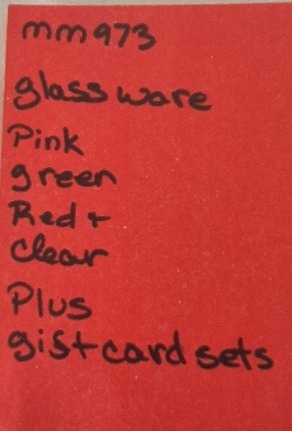 mm973
glassware
Pink
green
Red +
clear
Plus
gist card sets